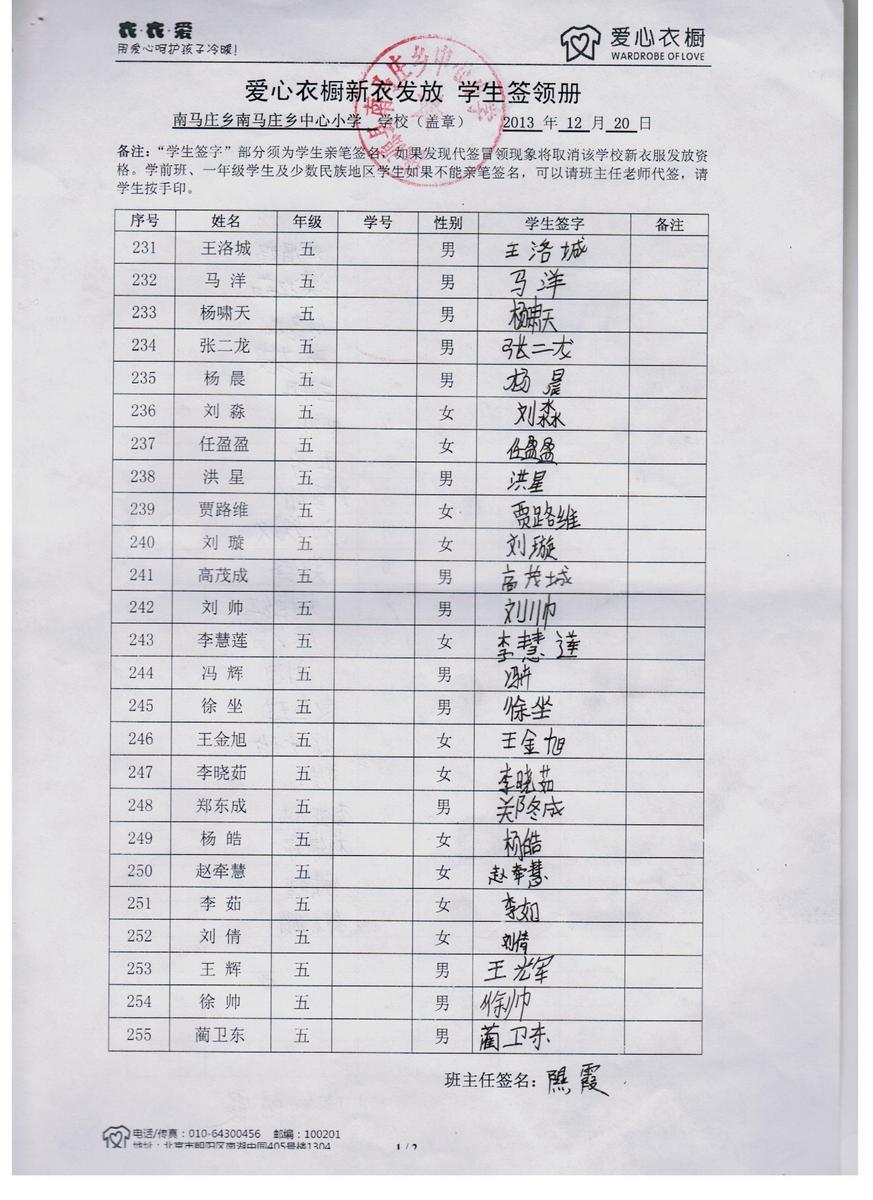 衣·衣·爱
用爱心呵护孩子冷暖!
爱心衣橱
WARDROBE OF LOVE
爱心衣橱新衣发放 学生签领册
南马庄乡南马庄乡中心小学 学校（盖章） 2013 年 12 月 20 日
备注：“学生签字”部分须为学生亲笔签名，如果发现代签冒领现象将取消该学校新衣服发放资
格。学前班、一年级学生及少数民族地区学生如果不能亲笔签名，可以请班主任老师代签，请
学生按手印。
序号 姓名 年级 学号 性别 学生签字 备注
231 王洛城 五 男 王洛城
232 马 洋 五 男 马洋
233 杨啸天 五 男 杨啸天
234 张二龙 五 男 张二龙
235 杨 晨 五 男 杨晨
236 刘 淼 五 女 刘淼
237 任盈盈 五 女 任盈盈
238 洪 星 五 男 洪星
239 贾路维 五 女 贾路维
240 刘 璇 五 女 刘璇
241 高茂成 五 男 高茂城
242 刘 帅 五 男 刘帅
243 李慧莲 五 女 李慧莲
244 冯 辉 五 男
245 徐 坐 五 男 徐坐
246 王金旭 五 女 王金旭
247 李晓茹 五 女 李晓茹
248 郑东成 五 男 郑冬成
249 杨 皓 五 女 杨皓
250 赵牵慧 五 女 赵牵慧
251 李 茹 五 女 李如
252 刘 倩 五 女 刘倩
253 王 辉 五 男 王光军
254 徐 帅 五 男 徐帅
255 蔺卫东 五 男 蔺卫东
班主任签名：霞
电话/传真：010-64300456 邮编：100201
地址：北京市朝阳区南湖中园405号楼1304
1 / 2